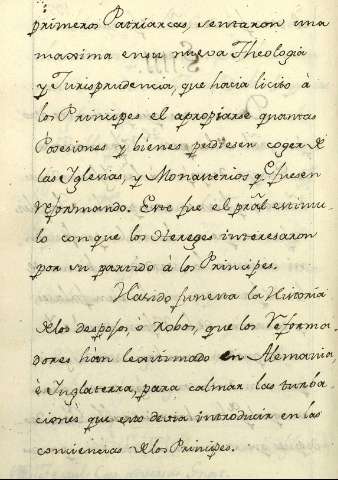 primeros Patriarcas, sentaron una
maxima en su nueva Theologia
y Jurisprudencia, que hacia licito à
los Principes el apropiarse quantas
Posesiones y bienes pudiesen coger de
las Iglesias, y Monasterios q.e fuesen
reformando. Este fue el prãl estimu-
lo con que los Hereges interesaron
por su partido à los Principes.
Ha sido funesta la Historia
de los despojos, ò robos, que los reforma-
dores hàn legitimado en Alemania
è Inglaterra, para calmar las turba-
ciònes que esto devia introducir en las
conciencias de los Principes.